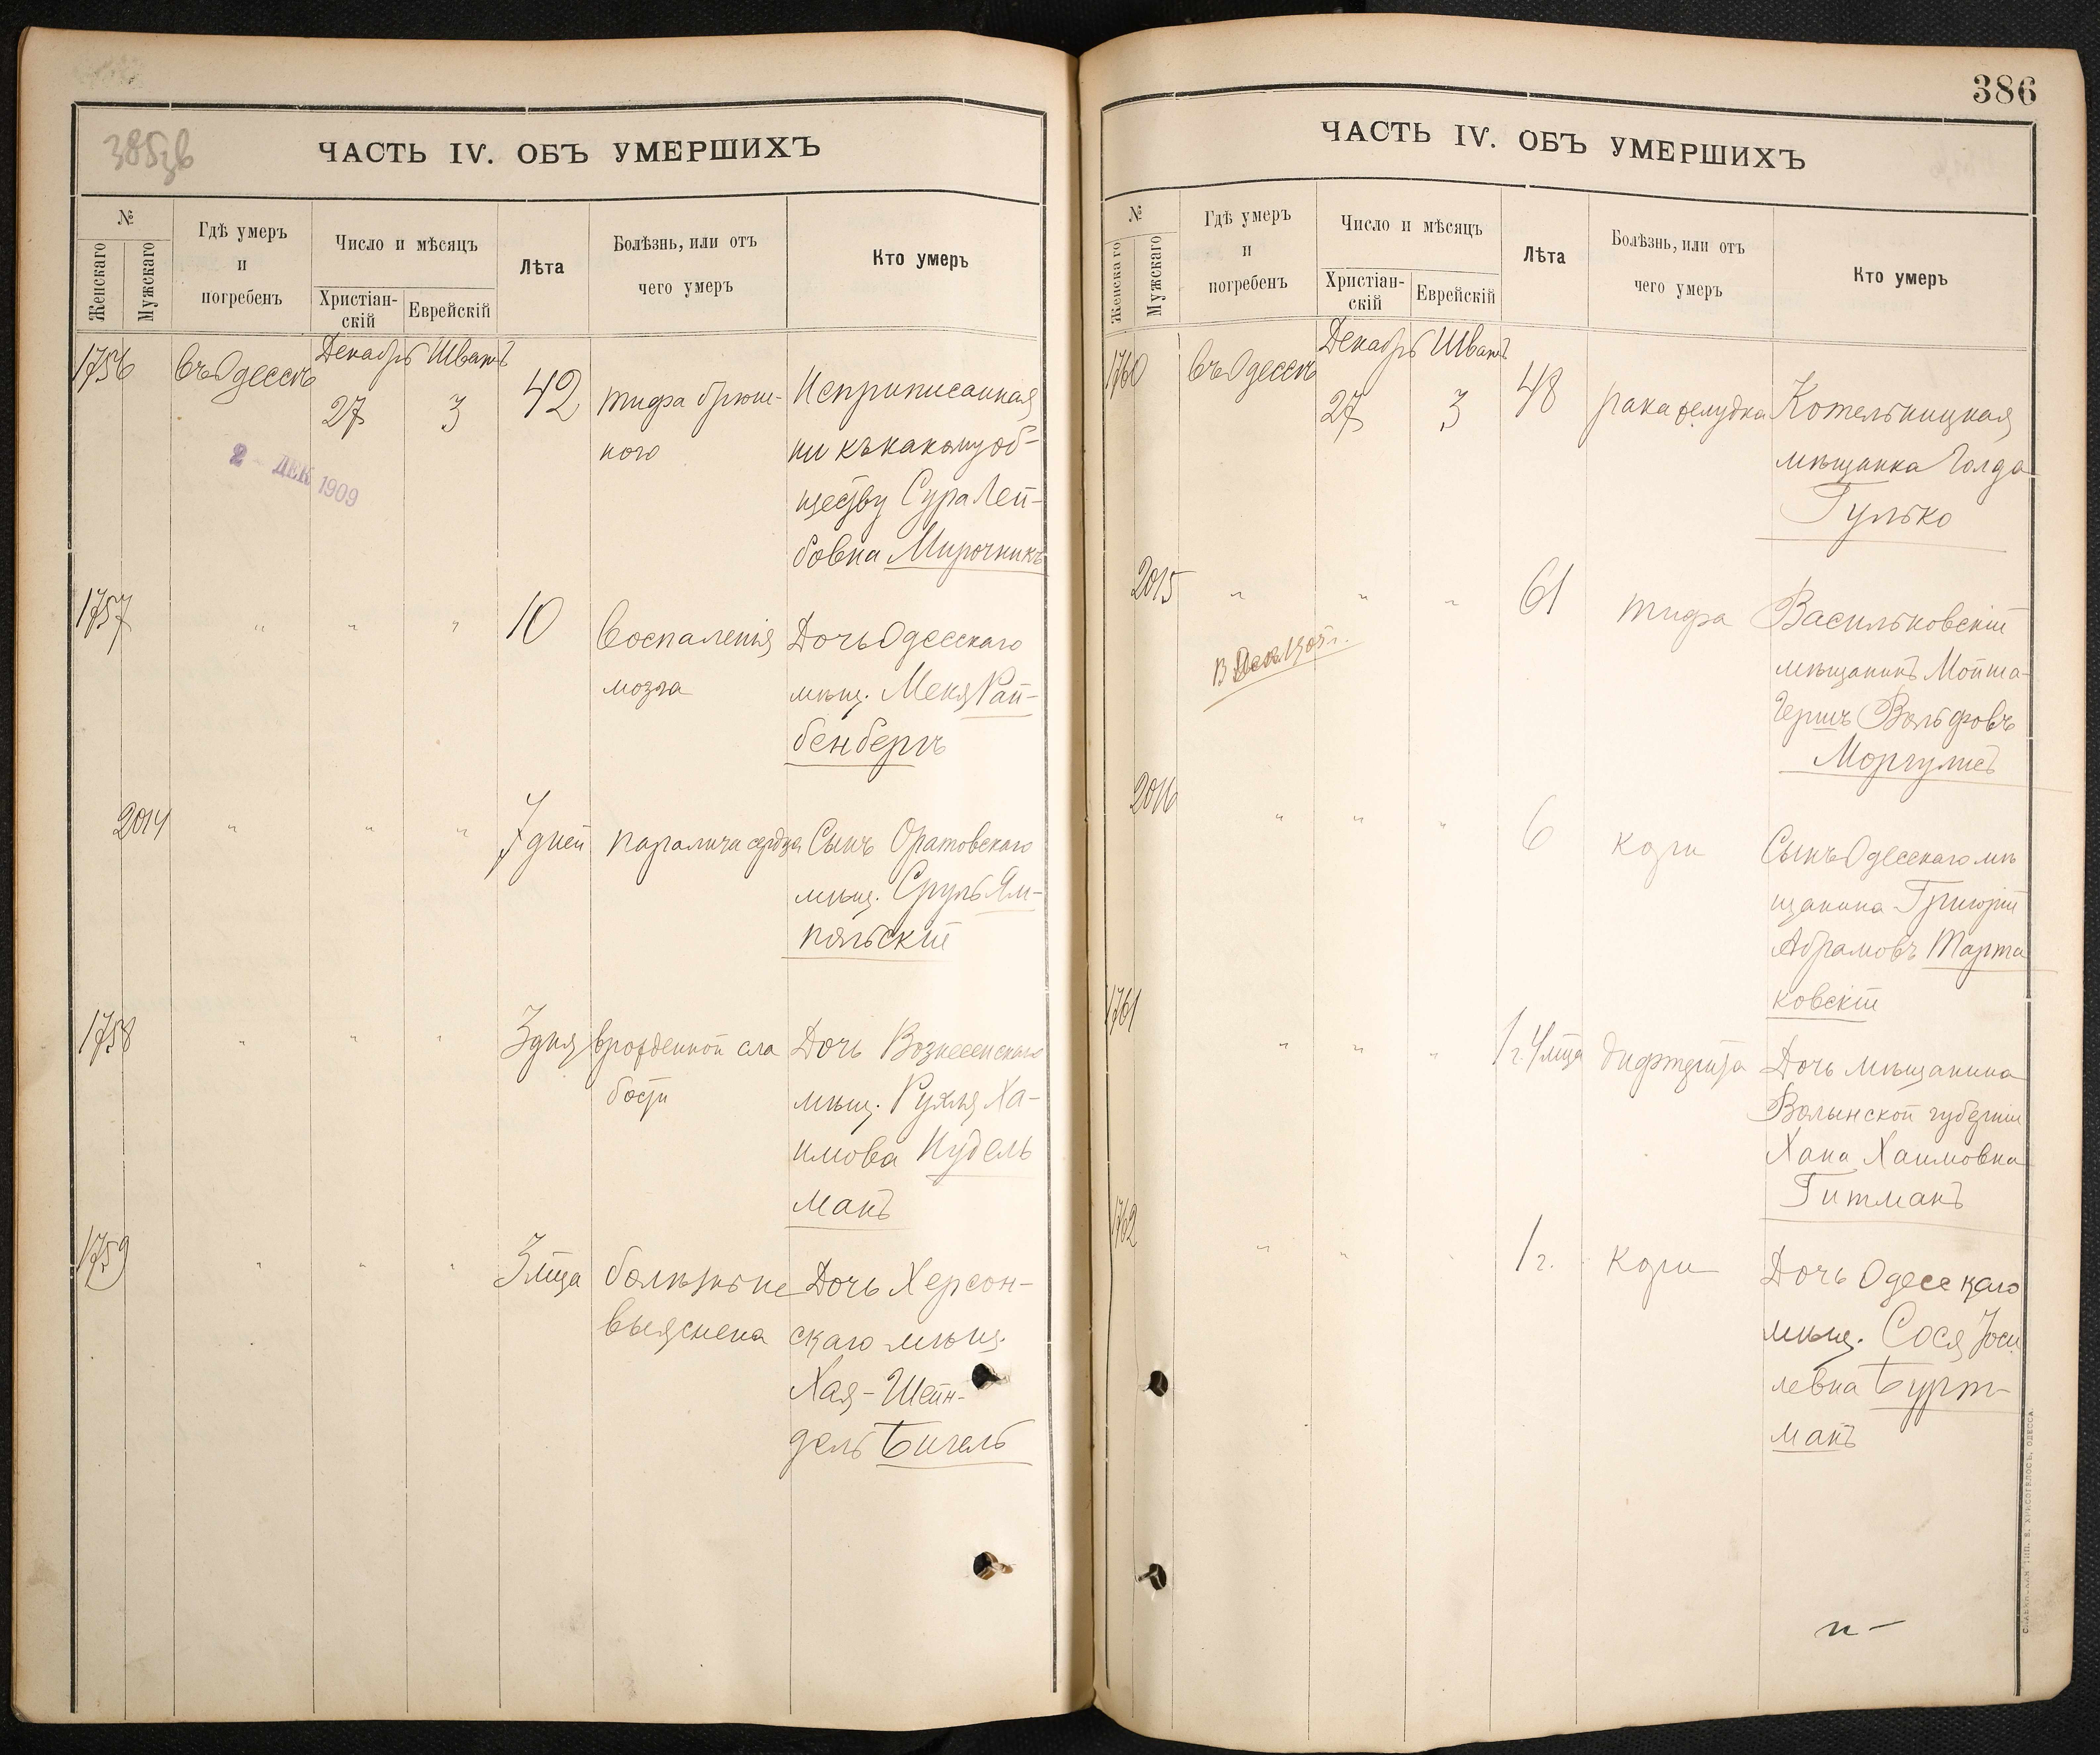 385зв
ЧАСТЬ IV. ОБЪ УМЕРШИХЪ
№
Женскаго
Мужскаго
Гдѣ умеръ
и
погребенъ
Число и мѣсяцъ
Христіан-
скій
Еврейскій
Лѣта
Болѣзнь, или отъ
чего умеръ
Кто умеръ
1756 въ Одессѣ Декабрь Шватъ
27 3 42 тифа брюш- Неприписанная
ного ни къ какому об-
2 - ДЕК 1909
ществу Сура Лей-
бовна Мирочникъ
1757 " " " 10 воспаленія Дочь Одесскаго
мозга мѣщ. Меня Рай-
бенбергъ
2014 " " " 7 дней паралича сердца Сынъ Оратовскаго
мѣщ. Сруль Ям-
польскій
1758 " " " 3 дня врожденной сла Дочь Вознесенскаго
бости мѣщ. Рухля Ха-
имова Нудель
манъ
1759 " " " 3 м‑ца болѣзнь не Дочь Херсон-
выяснена скаго мѣщ.
Хая-Шейн-
дель Бигель
386
ЧАСТЬ IV. ОБЪ УМЕРШИХЪ
№
Женскаго
Мужскаго
Гдѣ умеръ
и
погребенъ
Число и мѣсяцъ
Христіан-
скій
Еврейскій
Лѣта
Болѣзнь, или отъ
чего умеръ
Кто умеръ
1760 въ Одессѣ Декабрь Шватъ
27 3 48 рака желудка Котельницкая
мѣщанка Голда
Гулько
2015 " " " 61 тифа Васильковскій
мѣщанинъ Мойша-
Гершъ Вольфовъ
Моргулисъ
2016 " " " 6 кори Сынъ Одесскаго мѣ
щанина Григорій
Абрамовъ Марта
ковскій
1761 " " " 1 г. 4 м‑ца дифтерита Дочь мѣщанина
Волынской губерніи
Хана Хаимовна
Гитманъ
1762 " " 1 г. кори Дочь Одесскаго
мѣщ. Сося Іоси
левна Бурт-
манъ